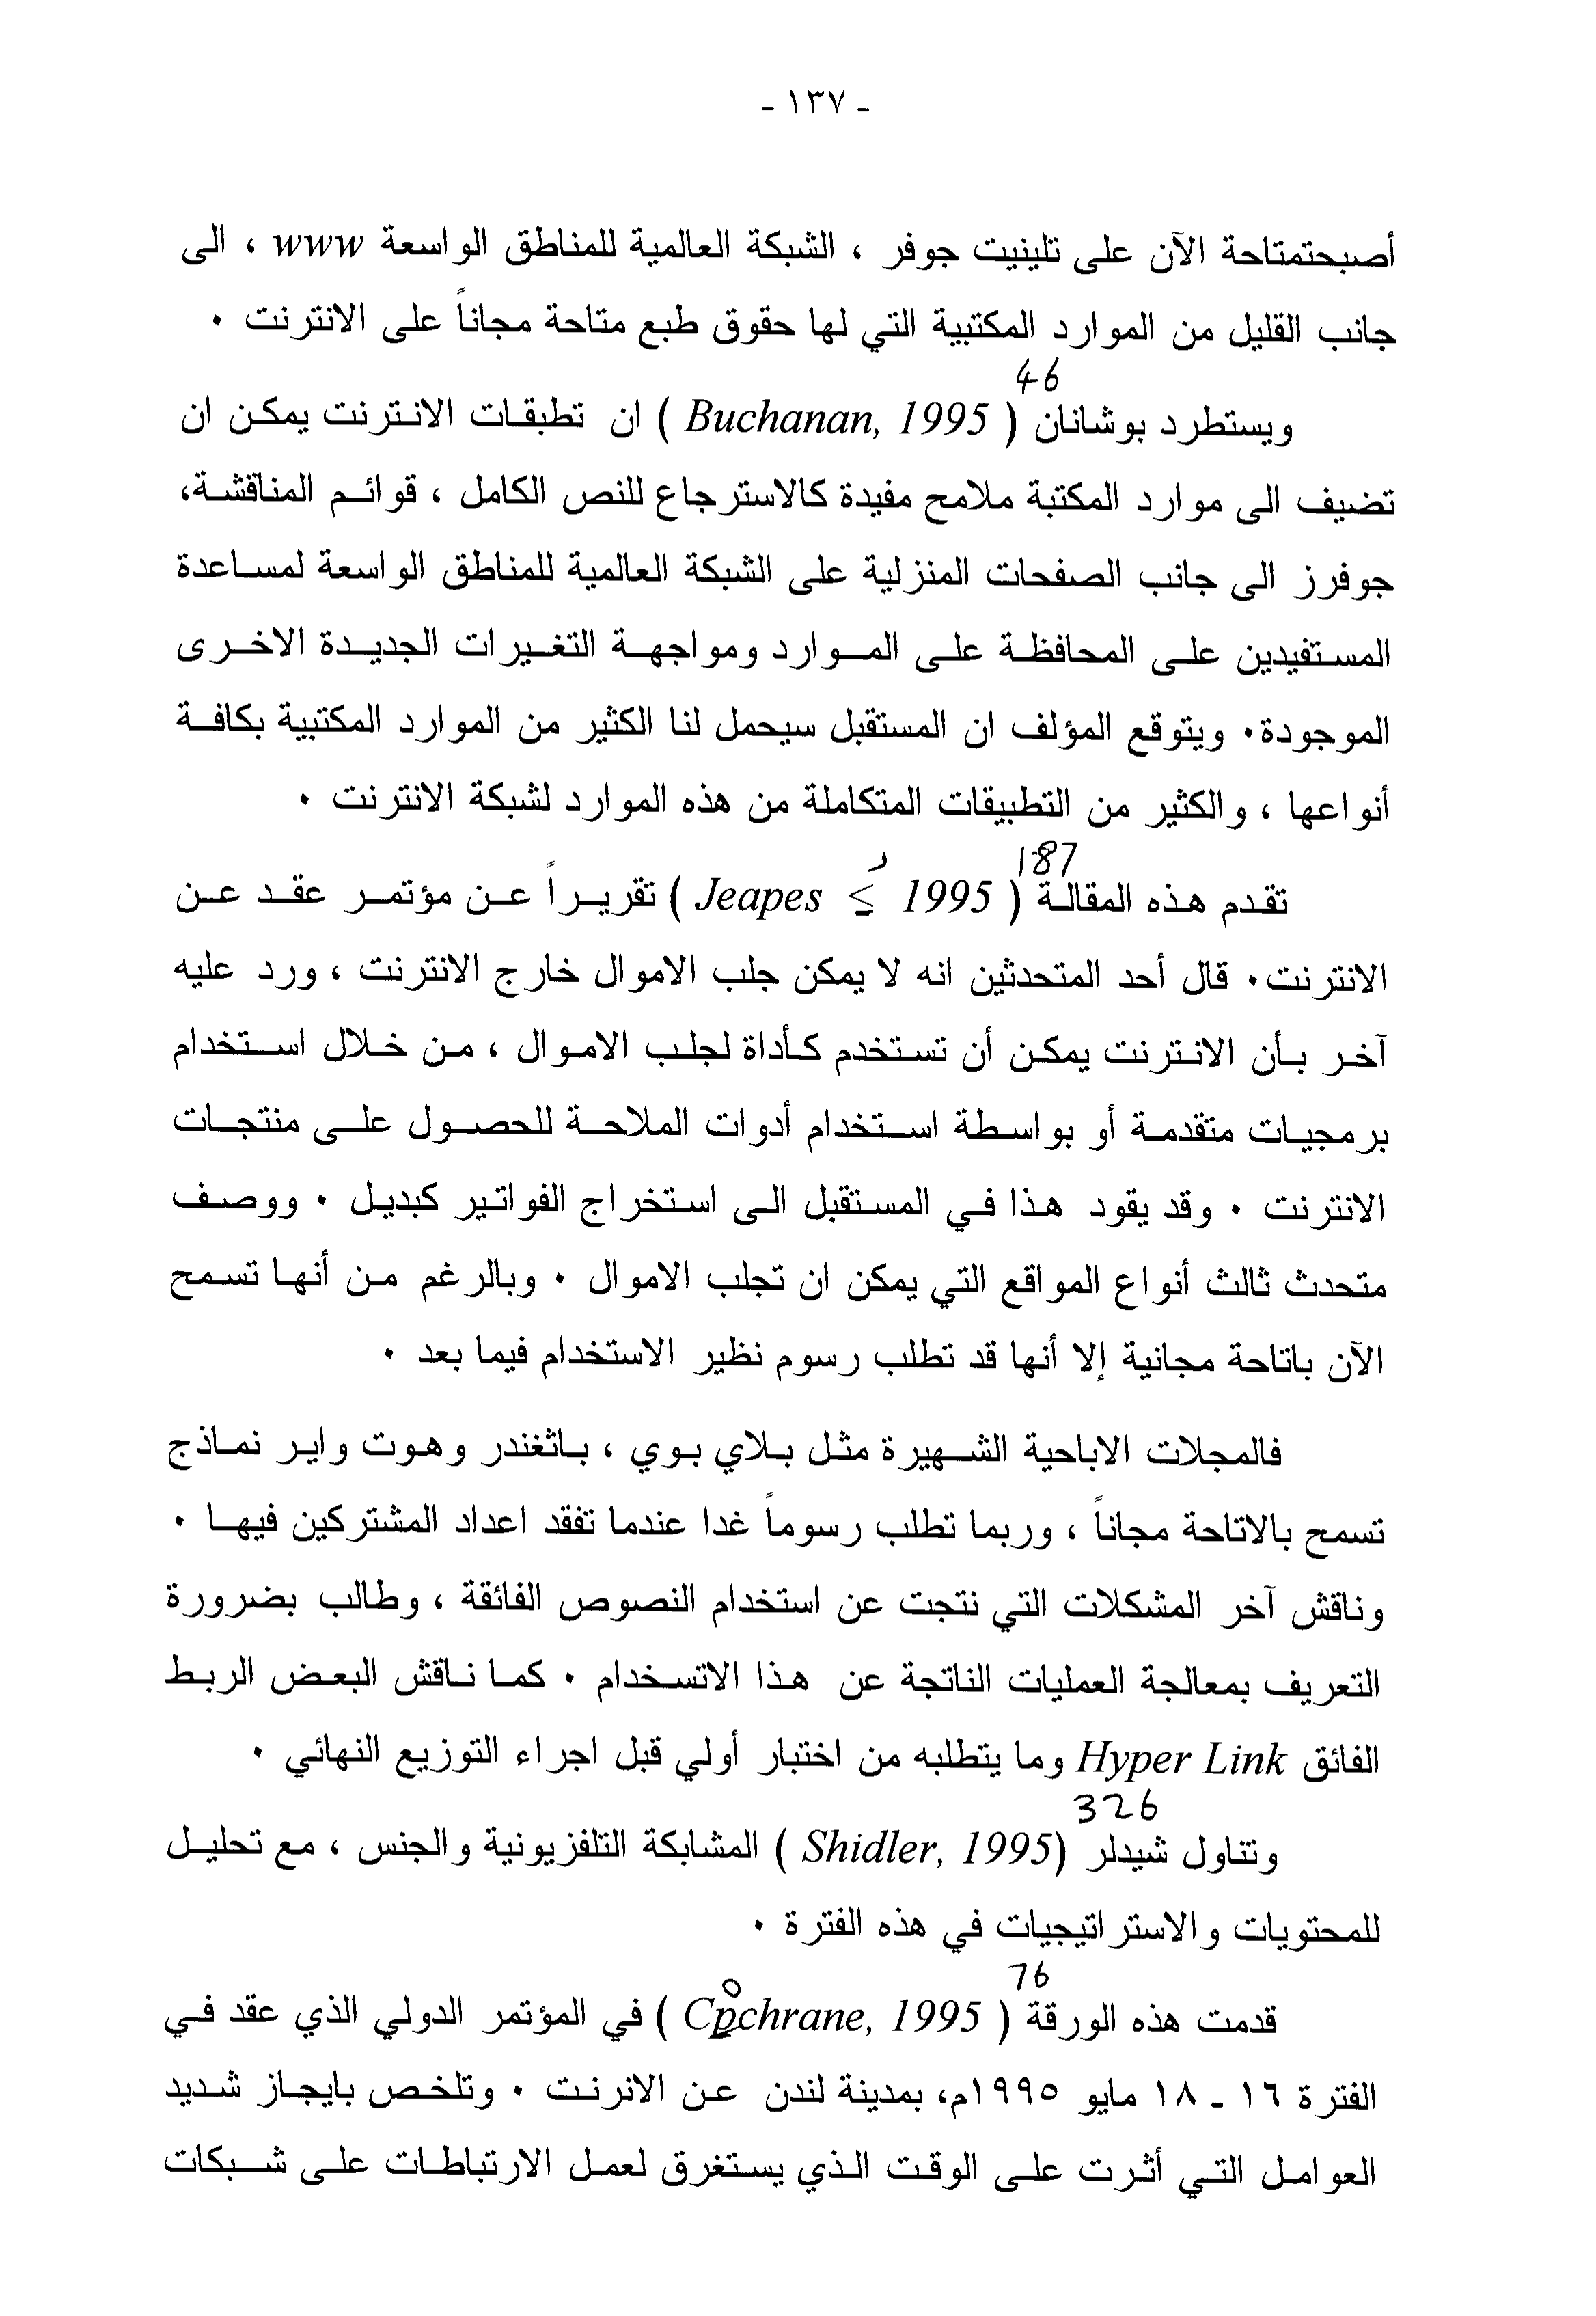 - ١٣٧ -
أصبحتمتاحة الآن على تلينيت جوفر ، الشبكة العالمية للمناطق الواسعة www ، الى
جانب القليل من الموارد المكتبية التي لها حقوق طبع متاحة مجاناً على الانترنت ٠
46
ويستطرد بوشانان ( Buchanan, 1995 ) ان تطبقات الانترنت يمكن ان
تضيف الى موارد المكتبة ملامح مفيدة كالاسترجاع للنص الكامل ، قوائم المناقشة،
جوفرز الى جانب الصفحات المنزلية على الشبكة العالمية للمناطق الواسعة لمساعدة
المستفيدين على المحافظة على الموارد ومواجهة التغيرات الجديدة الاخرى
الموجودة٠ ويتوقع المؤلف ان المستقبل سيحمل لنا الكثير من الموارد المكتبية بكافة
أنواعها ، والكثير من التطبيقات المتكاملة من هذه الموارد لشبكة الانترنت ٠
187
تقدم هذه المقالة ( Jeapes ≤ 1995 ) تقريراً عن مؤتمر عقد عن
الانترنت٠ قال أحد المتحدثين انه لا يمكن جلب الاموال خارج الانترنت ، ورد عليه
آخر بأن الانترنت يمكن أن تستخدم كأداة لجلب الاموال ، من خلال استخدام
برمجيات متقدمة أو بواسطة استخدام أدوات الملاحة للحصول على منتجات
الانترنت ٠ وقد يقود هذا في المستقبل الى استخراج الفواتير كبديل ٠ ووصف
متحدث ثالث أنواع المواقع التي يمكن ان تجلب الاموال ٠ وبالرغم من أنها تسمح
الآن باتاحة مجانية إلا أنها قد تطلب رسوم نظير الاستخدام فيما بعد ٠
فالمجلات الاباحية الشهيرة مثل بلاي بوي ، باثغندر وهوت واير نماذج
تسمح بالاتاحة مجاناً ، وربما تطلب رسوماً غدا عندما تفقد اعداد المشتركين فيها ٠
وناقش آخر المشكلات التي نتجت عن استخدام النصوص الفائقة ، وطالب بضرورة
التعريف بمعالجة العمليات الناتجة عن هذا الاتسخدام ٠ كما ناقش البعض الربط
الفائق Hyper Link وما يتطلبه من اختبار أولي قبل اجراء التوزيع النهائي ٠
326
وتناول شيدلر (Shidler, 1995 ) المشابكة التلفزيونية والجنس ، مع تحليل
للمحتويات والاستراتيجيات في هذه الفترة ٠
76
قدمت هذه الورقة ( Cochrane, 1995 ) في المؤتمر الدولي الذي عقد في
الفترة ١٦ - ١٨ مايو ١٩٩٥م، بمدينة لندن عن الانرنت ٠ وتلخص بايجاز شديد
العوامل التي أثرت على الوقت الذي يستغرق لعمل الارتباطات على شبكات